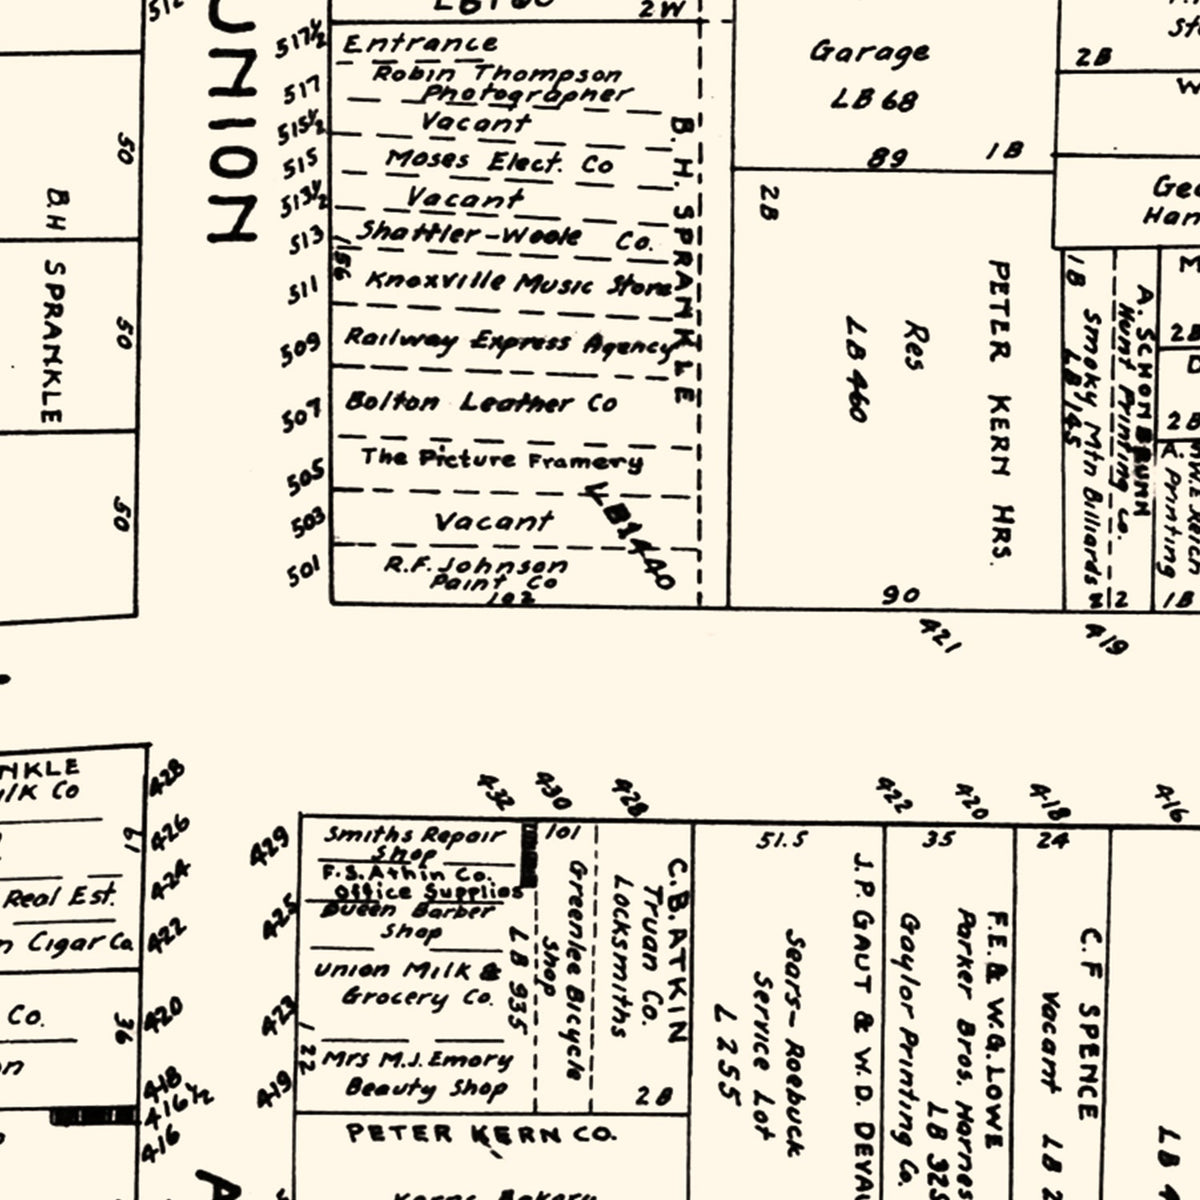 UNION
517½
517
515½
515
513½
513
511
509
507
505
503
501
2W
Entrance
Robin Thompson
Photographer
Vacant
Moses Elect. Co
Vacant
Shattler-Woole Co.
156
Knoxville Music Store
Railway Express Agency
Bolton Leather Co
The Picture Framery
Vacant
LB1440
R.F. Johnson
Paint Co
102
B. H. SPRANKLE
50
50
50
B H SPRANKLE
Garage
LB 68
89
1B
2B
Res
LB 460
PETER KERN HRS.
90
421
2B
1B
Smoky Mtn Billards
LB 145
A. SCHOMBRUNN
Hunt Printing Co.
12
2B
2B
Printing
1B
419
NKLE
Real Est.
Cigar Co
Co.
61
36
428
426
424
422
420
418
416½
416
432
430
428
422
420
418
416
429
425
423
419
Smiths Repair
Shop
F.S. Athin Co.
Office Supplies
Queen Barber
Shop
Union Milk &
Grocery Co.
122
Mrs M.J. Emory
Beauty Shop
LB 935
101
Greenlee Bicycle
Shop
C.B. ATKIN
Truan Co.
Locksmiths
2B
PETER KERN CO.
51.5
Sears-Roebuck
Service Lot
L 255
J.P. GAUT & W.D.
35
F.E. & W.G. LOWE
Parker Bros.
Gaylor Printing Co.
LB 325
24
C.F SPENCE
Vacant